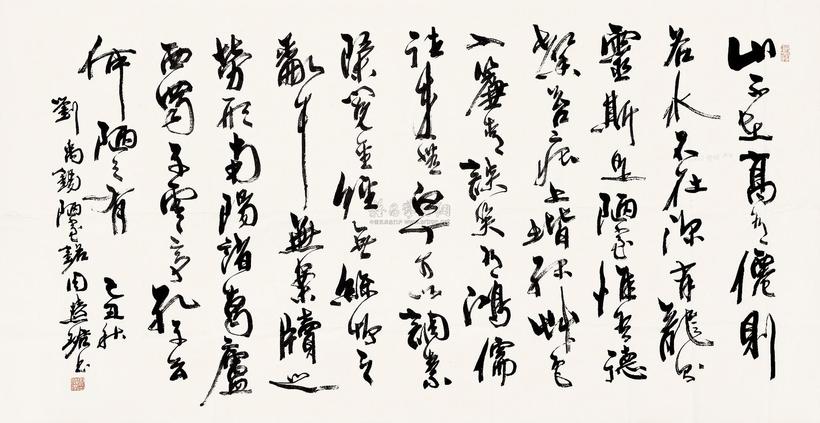 山不在高有僊則
名水不在深有龍則
靈斯是陋室惟吾德
馨苔痕上堦綠艸色
入簾青談笑有鴻儒
往來無白丁可以調素
琴閱金經無絲竹之
亂耳無案牘之
勞形南陽諸葛廬
西蜀子雲亭孔子云
何陋之有 己丑秋
劉禹錫陋室銘周慧珺书